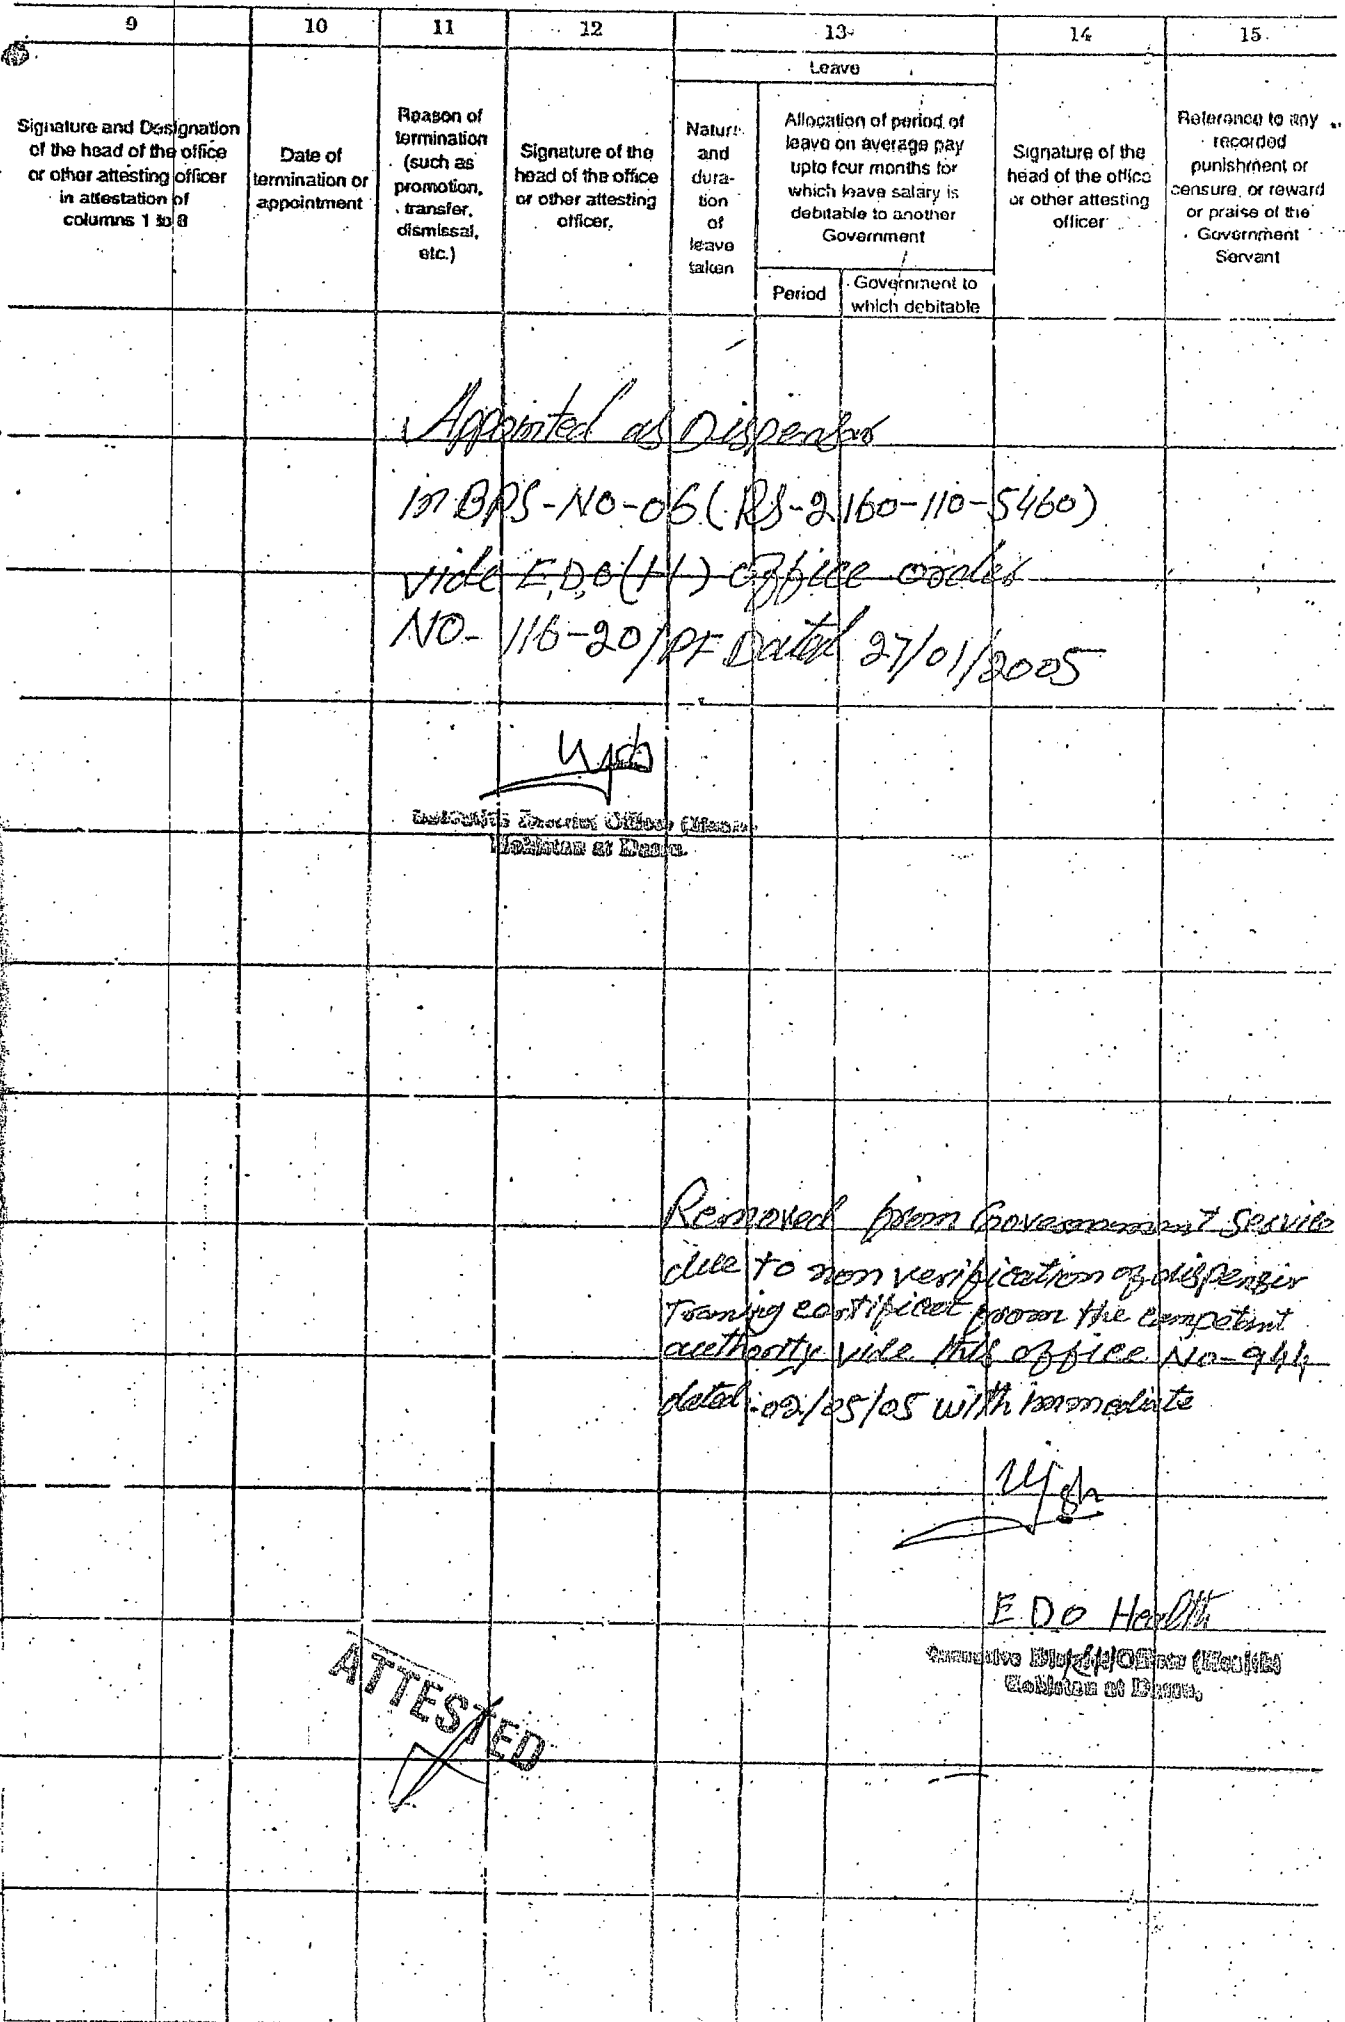 9 10 11 12 13 14 15
Leave
Signature and Designation
of the head of the office
or other attesting officer
in attestation of
columns 1 to 8
Date of
termination or
appointment
Reason of
termination
(such as
promotion,
transfer,
dismissal,
etc.)
Signature of the
head of the office
or other attesting
officer.
Nature
and
dura-
tion
of
leave
taken
Allocation of period of
leave on average pay
upto four months for
which leave salary is
debitable to another
Government
Period
Government to
which debitable
Signature of the
head of the office
or other attesting
officer
Reference to any
recorded
punishment or
censure, or reward
or praise of the
Government
Servant
Appointed as Dispensar
in BPS-NO-06 (RS-2160-110-5460)
vide E.D.O(H) office order
NO- 116-20/PF Dated 27/01/2005
District Officer
Kohistan at Dassu.
Removed from Government Service
due to non verification of dispensir
Traning certificat from the competent
authorty vide this office No-944
dated:-02/05/05 with immediate
E D O Health
Executive District Officer (Health)
Kohistan at Dassu.
ATTESTED